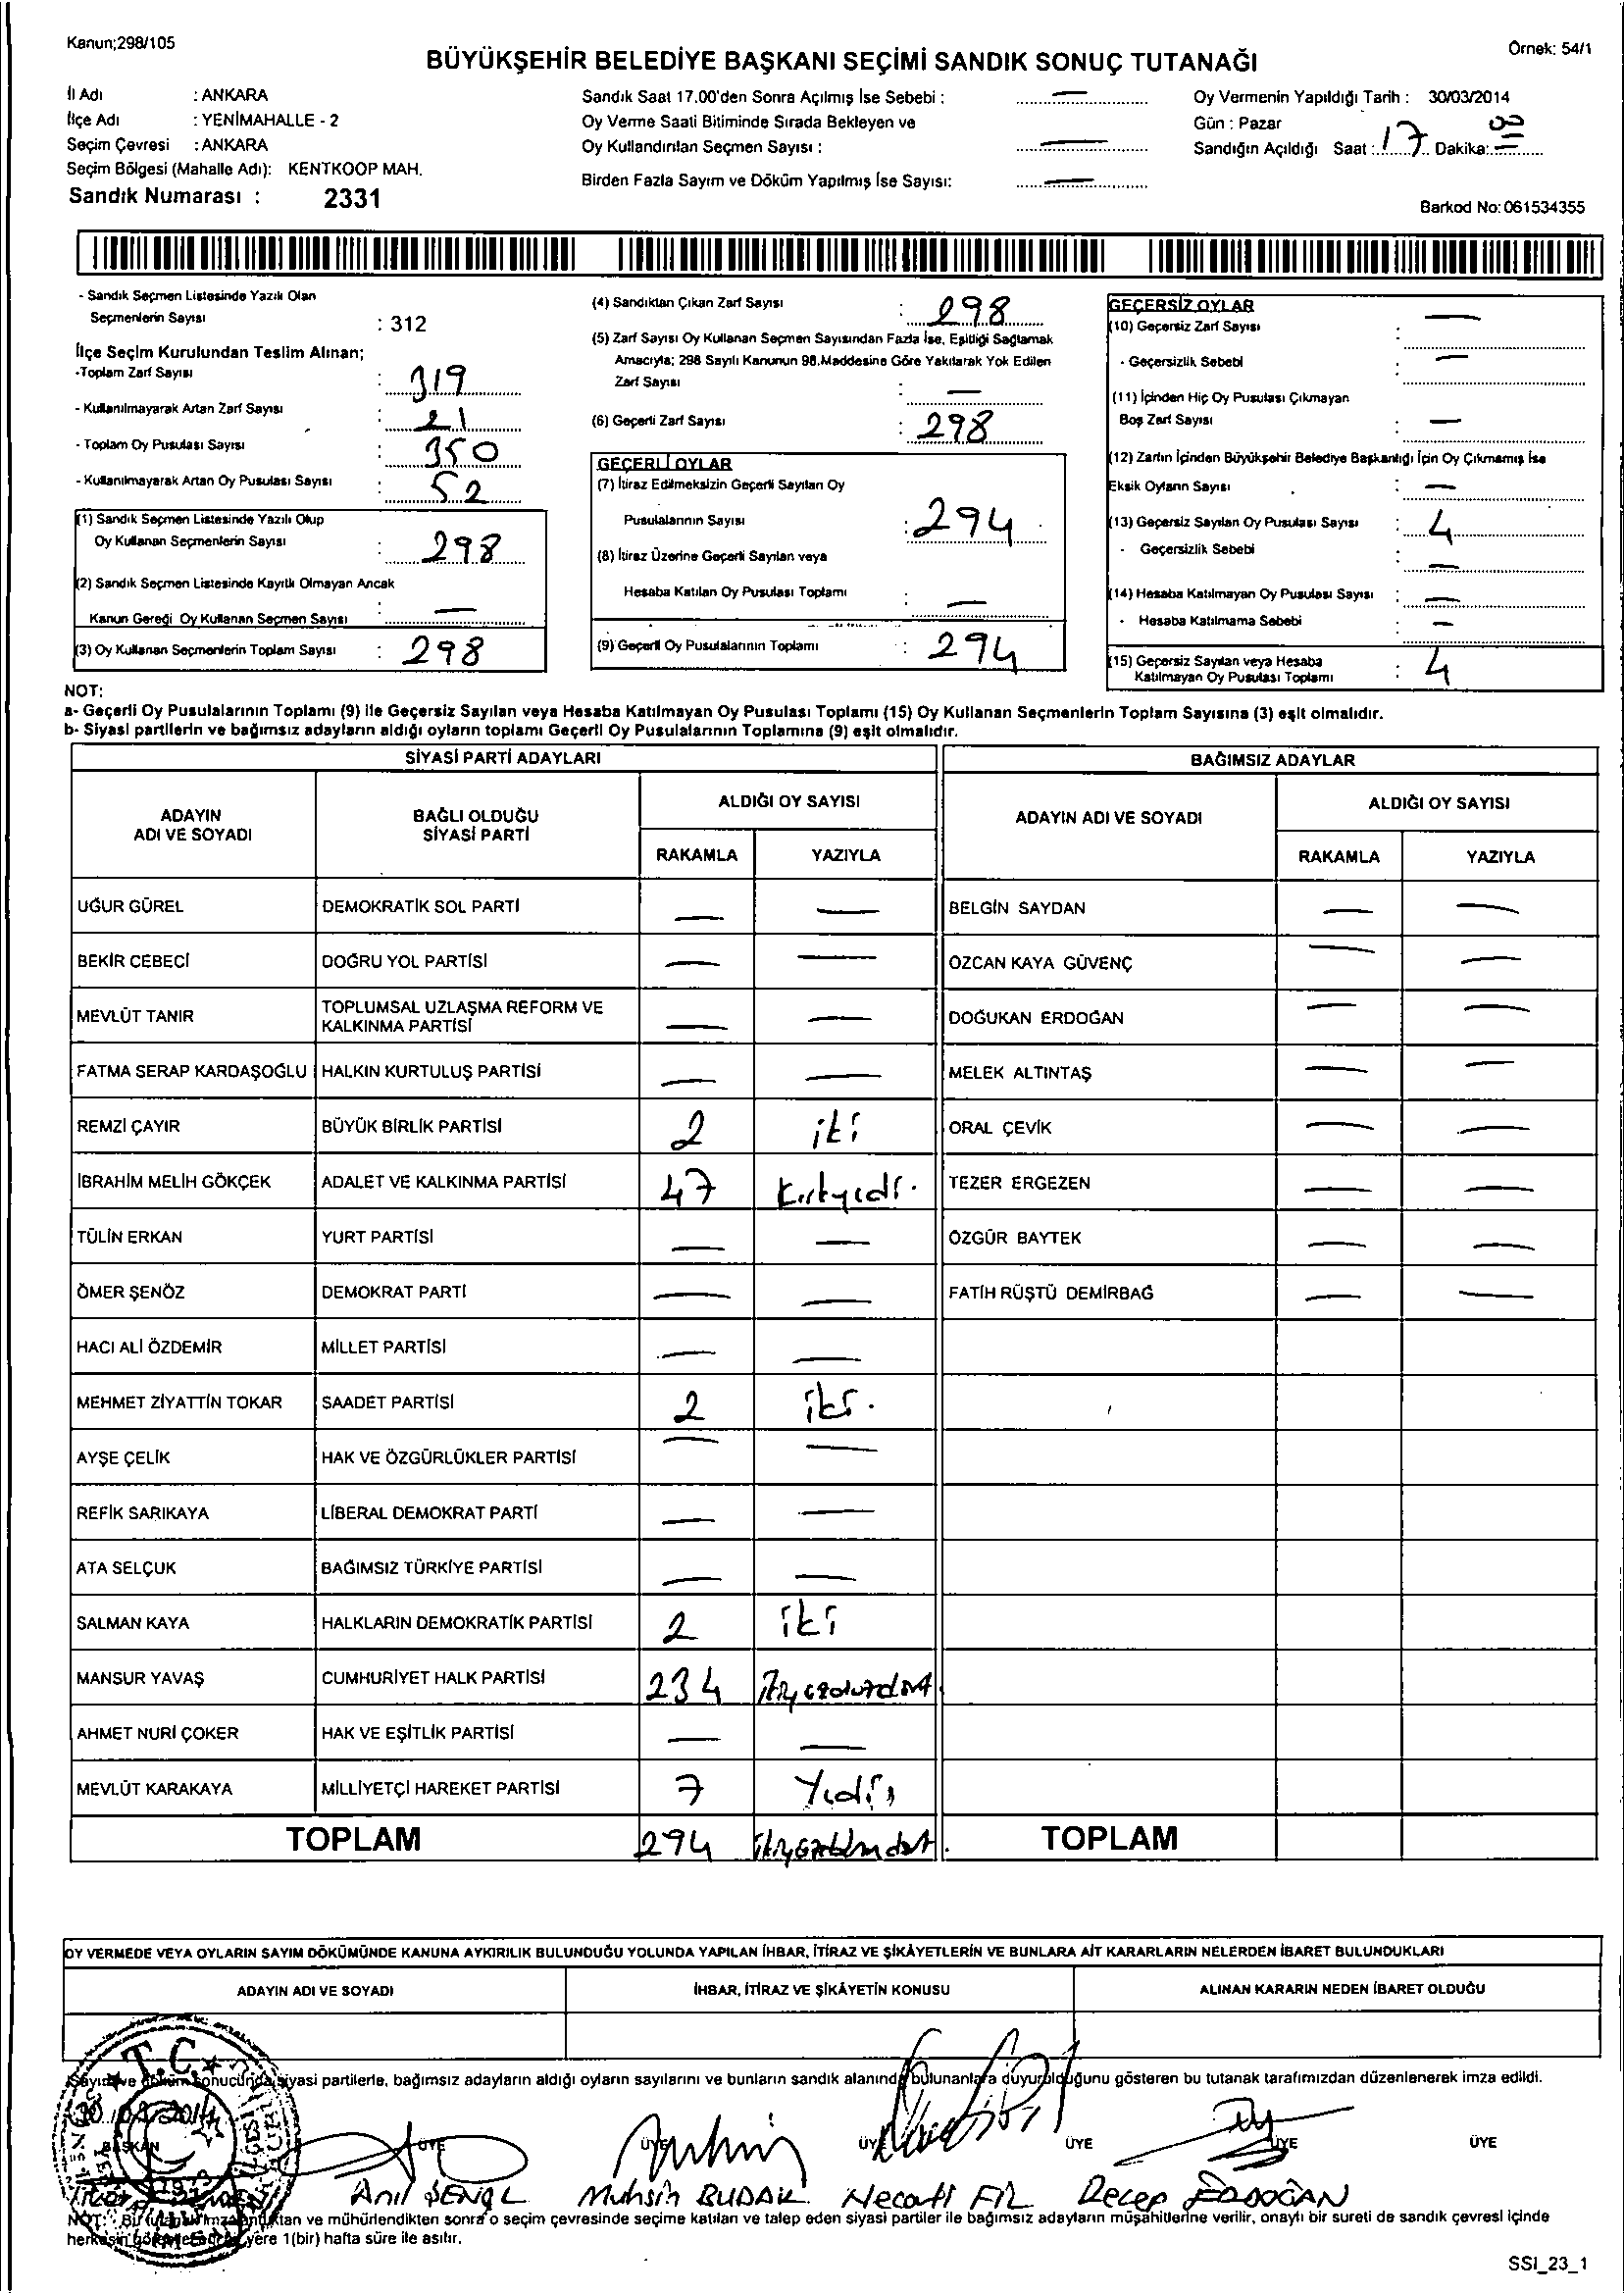 Kanun;298/105
Örnek: 54/1
BÜYÜKŞEHİR BELEDİYE BAŞKANI SEÇİMİ SANDIK SONUÇ TUTANAĞI
İl Adı : ANKARA
İlçe Adı : YENİMAHALLE - 2
Seçim Çevresi : ANKARA
Seçim Bölgesi (Mahalle Adı): KENTKOOP MAH.
Sandık Numarası : 2331
Sandık Saat 17.00'den Sonra Açılmış İse Sebebi : —
Oy Verme Saati Bitiminde Sırada Bekleyen ve
Oy Kullandırılan Seçmen Sayısı : —
Birden Fazla Sayım ve Döküm Yapılmış İse Sayısı: —
Oy Vermenin Yapıldığı Tarih : 30/03/2014
Gün : Pazar
Sandığın Açıldığı Saat : 17 Dakika:
Barkod No: 061534355
- Sandık Seçmen Listesinde Yazılı Olan
Seçmenlerin Sayısı : 312
İlçe Seçim Kurulundan Teslim Alınan;
-Toplam Zarf Sayısı : 319
- Kullanılmayarak Artan Zarf Sayısı : 21
- Toplam Oy Pusulası Sayısı : 350
- Kullanılmayarak Artan Oy Pusulası Sayısı : 52
(1) Sandık Seçmen Listesinde Yazılı Olup
Oy Kullanan Seçmenlerin Sayısı : 298
(2) Sandık Seçmen Listesinde Kayıtlı Olmayan Ancak
Kanun Gereği Oy Kullanan Seçmen Sayısı : —
(3) Oy Kullanan Seçmenlerin Toplam Sayısı : 298
(4) Sandıktan Çıkan Zarf Sayısı : 298
(5) Zarf Sayısı Oy Kullanan Seçmen Sayısından Fazla İse, Eşitliği Sağlamak
Amacıyla; 298 Sayılı Kanunun 98.Maddesine Göre Yakılarak Yok Edilen
Zarf Sayısı : —
(6) Geçerli Zarf Sayısı : 298
GEÇERLİ OYLAR
(7) İtiraz Edilmeksizin Geçerli Sayılan Oy
Pusulalarının Sayısı : 294
(8) İtiraz Üzerine Geçerli Sayılan veya
Hesaba Katılan Oy Pusulası Toplamı : —
(9) Geçerli Oy Pusulalarının Toplamı : 294
GEÇERSİZ OYLAR
(10) Geçersiz Zarf Sayısı : —
- Geçersizlik Sebebi : —
(11) İçinden Hiç Oy Pusulası Çıkmayan
Boş Zarf Sayısı : —
(12) Zarfın İçinden Büyükşehir Belediye Başkanlığı İçin Oy Çıkmamış İse
Eksik Oyların Sayısı : —
(13) Geçersiz Sayılan Oy Pusulası Sayısı : 4
- Geçersizlik Sebebi : —
(14) Hesaba Katılmayan Oy Pusulası Sayısı : —
- Hesaba Katılmama Sebebi : —
(15) Geçersiz Sayılan veya Hesaba
Katılmayan Oy Pusulası Toplamı : 4
NOT:
a- Geçerli Oy Pusulalarının Toplamı (9) ile Geçersiz Sayılan veya Hesaba Katılmayan Oy Pusulası Toplamı (15) Oy Kullanan Seçmenlerin Toplam Sayısına (3) eşit olmalıdır.
b- Siyasi partilerin ve bağımsız adayların aldığı oyların toplamı Geçerli Oy Pusulalarının Toplamına (9) eşit olmalıdır.
SİYASİ PARTİ ADAYLARI
ADAYIN ADI VE SOYADI BAĞLI OLDUĞU SİYASİ PARTİ ALDIĞI OY SAYISI
RAKAMLA YAZIYLA
UĞUR GÜREL DEMOKRATİK SOL PARTİ — —
BEKİR CEBECİ DOĞRU YOL PARTİSİ — —
MEVLÜT TANIR TOPLUMSAL UZLAŞMA REFORM VE KALKINMA PARTİSİ — —
FATMA SERAP KARDAŞOĞLU HALKIN KURTULUŞ PARTİSİ — —
REMZİ ÇAYIR BÜYÜK BİRLİK PARTİSİ 2 iki
İBRAHİM MELİH GÖKÇEK ADALET VE KALKINMA PARTİSİ 47 Kırkyedi.
TÜLİN ERKAN YURT PARTİSİ — —
ÖMER ŞENÖZ DEMOKRAT PARTİ — —
HACI ALİ ÖZDEMİR MİLLET PARTİSİ — —
MEHMET ZİYATTİN TOKAR SAADET PARTİSİ 2 iki.
AYŞE ÇELİK HAK VE ÖZGÜRLÜKLER PARTİSİ — —
REFİK SARIKAYA LİBERAL DEMOKRAT PARTİ — —
ATA SELÇUK BAĞIMSIZ TÜRKİYE PARTİSİ — —
SALMAN KAYA HALKLARIN DEMOKRATİK PARTİSİ 2 iki
MANSUR YAVAŞ CUMHURİYET HALK PARTİSİ 234
AHMET NURİ ÇOKER HAK VE EŞİTLİK PARTİSİ — —
MEVLÜT KARAKAYA MİLLİYETÇİ HAREKET PARTİSİ 7 Yedi
TOPLAM 294
BAĞIMSIZ ADAYLAR
ADAYIN ADI VE SOYADI ALDIĞI OY SAYISI
RAKAMLA YAZIYLA
BELGİN SAYDAN — —
ÖZCAN KAYA GÜVENÇ — —
DOĞUKAN ERDOĞAN — —
MELEK ALTINTAŞ — —
ORAL ÇEVİK — —
TEZER ERGEZEN — —
ÖZGÜR BAYTEK — —
FATİH RÜŞTÜ DEMİRBAĞ — —
TOPLAM
OY VERMEDE VEYA OYLARIN SAYIM DÖKÜMÜNDE KANUNA AYKIRILIK BULUNDUĞU YOLUNDA YAPILAN İHBAR, İTİRAZ VE ŞİKÂYETLERİN VE BUNLARA AİT KARARLARIN NELERDEN İBARET BULUNDUKLARI
ADAYIN ADI VE SOYADI İHBAR, İTİRAZ VE ŞİKÂYETİN KONUSU ALINAN KARARIN NEDEN İBARET OLDUĞU
T.C.
Sayım ve döküm sonucunda siyasi partilerle, bağımsız adayların aldığı oyların sayılarını ve bunların sandık alanında bulunanlara duyurulduğunu gösteren bu tutanak tarafımızdan düzenlenerek imza edildi.
BAŞKAN ÜYE ÜYE ÜYE ÜYE ÜYE ÜYE
Anıl ŞENGL Muhsin BUDAK Necati FİL Recep ERDOĞAN
NOT: Bu tutanak imzalandıktan ve mühürlendikten sonra o seçim çevresinde seçime katılan ve talep eden siyasi partiler ile bağımsız adayların müşahitlerine verilir, onaylı bir sureti de sandık çevresi içinde
herkesin görebileceği bir yere 1(bir) hafta süre ile asılır.
SSI_23_1